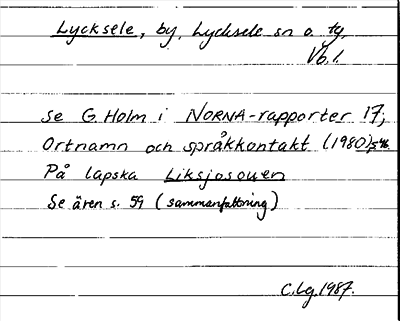 Lycksele, by, Lycksele sn o. tg,
Vb.l.
se G. Holm i NORNA-rapporter 17,
Ortnamn och språkkontakt (1980) s
På lapska Liksjosouen
Se även s. 59 (sammanfattning)
C.Lg. 1987.